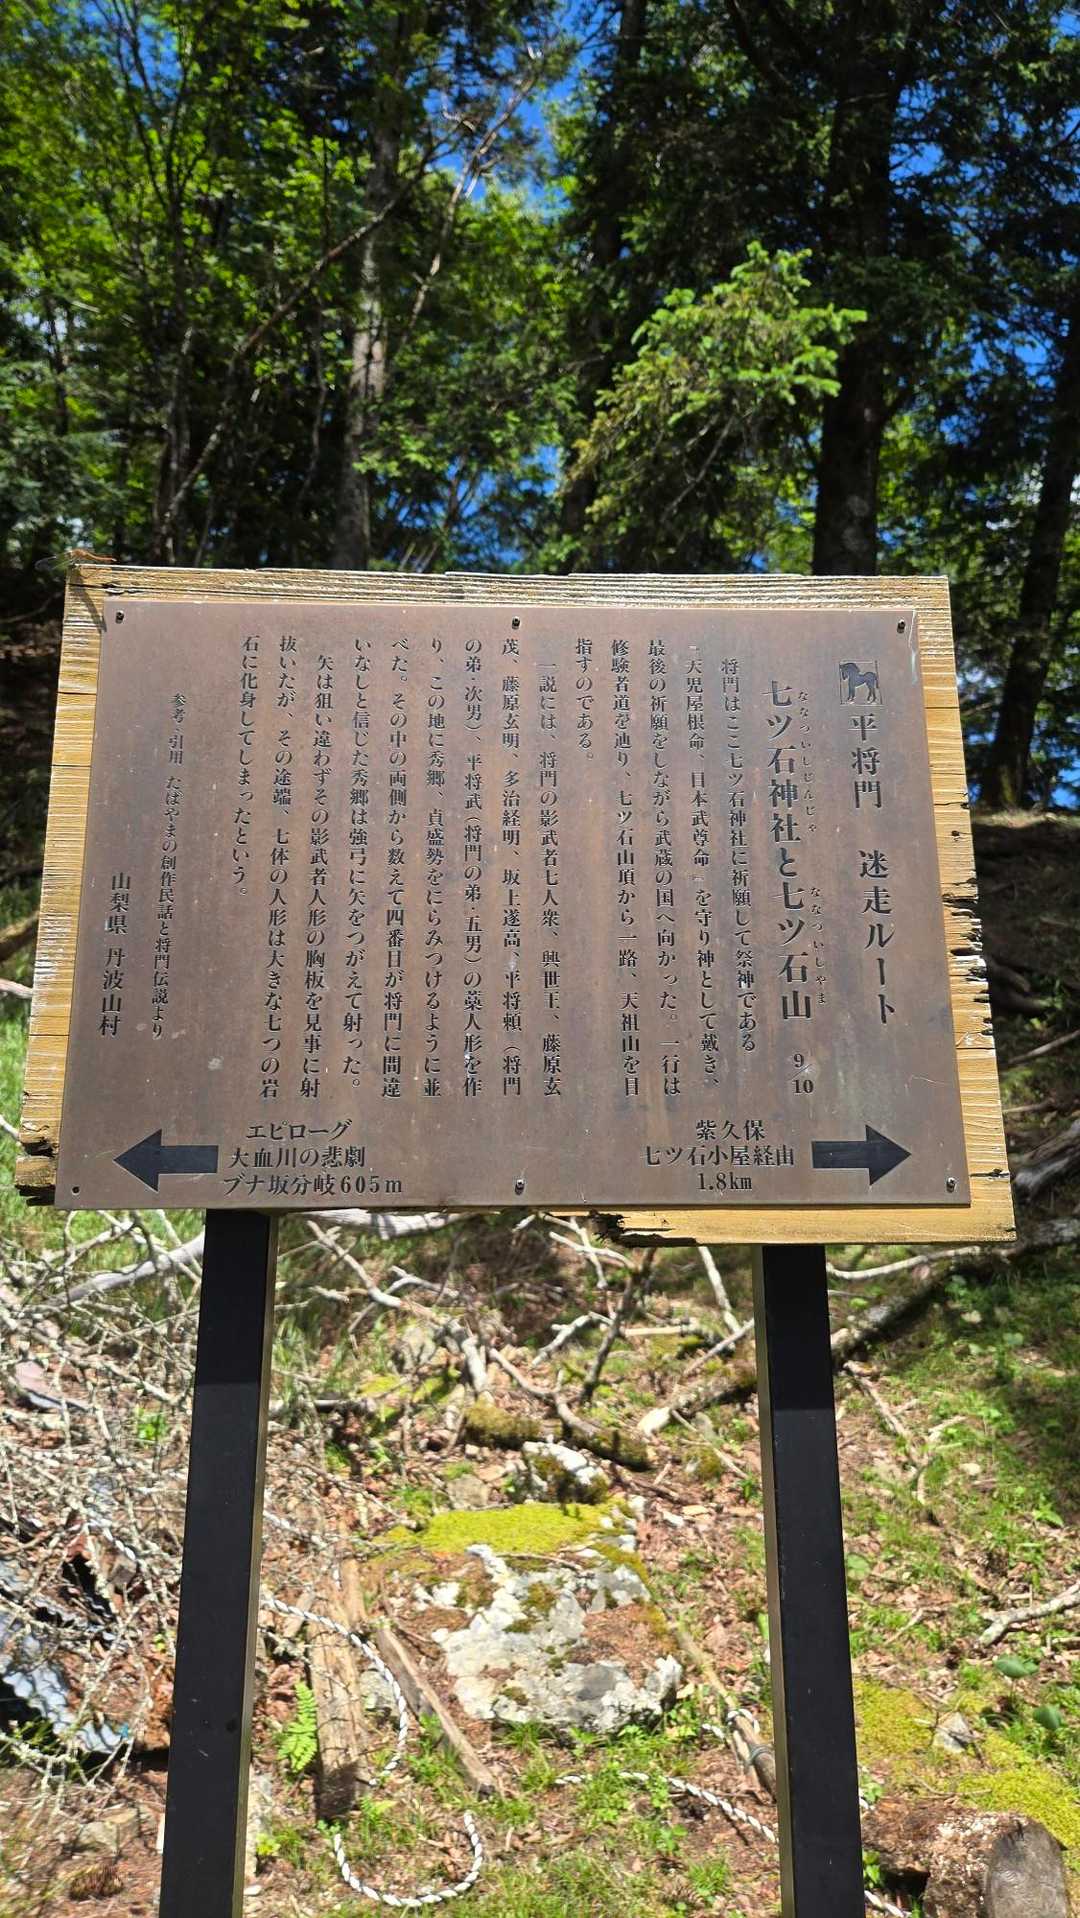 平将門 迷走ルート
七ツ石神社と七ツ石山 9/10
ななついしじんじゃ ななついしやま
将門はここ七ツ石神社に祈願して祭神である
『天児屋根命、日本武尊命』を守り神として戴き、
最後の祈願をしながら武蔵の国へ向かった。一行は
修験者道を辿り、七ツ石山頂から一路、天祖山を目
指すのである。
一説には、将門の影武者七人衆、興世王、藤原玄
茂、藤原玄明、多治経明、坂上遂高、平将頼(将門
の弟・次男)、平将武(将門の弟・五男)の藁人形を作
り、この地に秀郷、貞盛勢をにらみつけるように並
べた。その中の両側から数えて四番目が将門に間違
いなしと信じた秀郷は強弓に矢をつがえて射った。
矢は狙い違わずその影武者人形の胸板を見事に射
抜いたが、その途端、七体の人形は大きな七つの岩
石に化身してしまったという。
参考、引用 たばやまの創作民話と将門伝説より
山梨県 丹波山村
紫久保
七ツ石小屋経由
1.8km
エピローグ
大血川の悲劇
ブナ坂分岐605m